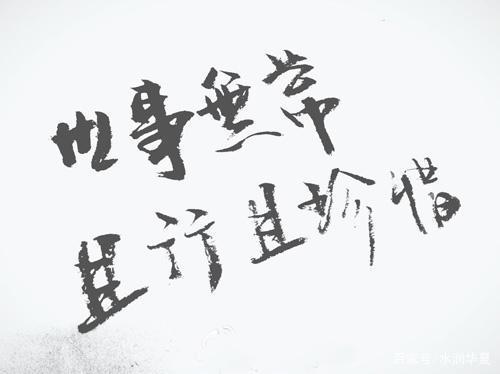 世事無常
且行且珍惜
百家号/水润华夏